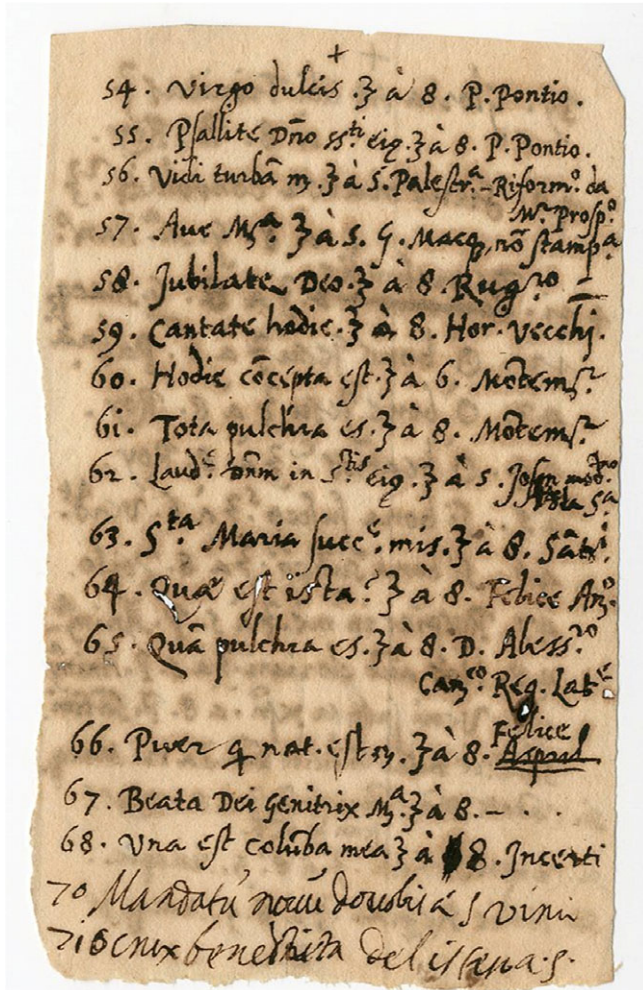 +
54. Virgo dulcis .ʒ à 8. P. Pontio.
55. Psallite Dño ss.ti eiꝯ.ʒ à 8. P. Pontio.
56. Vidi turbã m. ʒ à 5. Palestr.a - Riform.o da
M.r Prosp.o
57. Aue M.a ʒ à 5. G. Macq, nõ stamp.a
58. Jubilate Deo.ʒ à 8. Rug.ro -
59. Cantate hodie.ʒ à 8. Hor. Vecchi.
60. Hodie cõcepta est.ʒ à 6. Mõtem.r
61. Tota pulchra es.ʒ à 8. Mõtem.r
62. Laud.e Dñm in S.tis eiꝯ.ʒ à 5.
63. S.ta Maria succ.e mis.ʒ à 8. Sãt.i
64. Quæ est ista? ʒ à 8. Felice An.o
65. Quã pulchra es.ʒ à 8. D. Aless.ro
Can.co Reg. Lat.e
66. Puer q nat. est m. ʒ à 8. Felice
67. Beata Dei Genitrix M.a ʒ à 8. - . .
68. Vna est colũba mea ʒ à 8. Incerti
70 Mandatũ nouũ do uobis à 5
71 O crux benedicta del